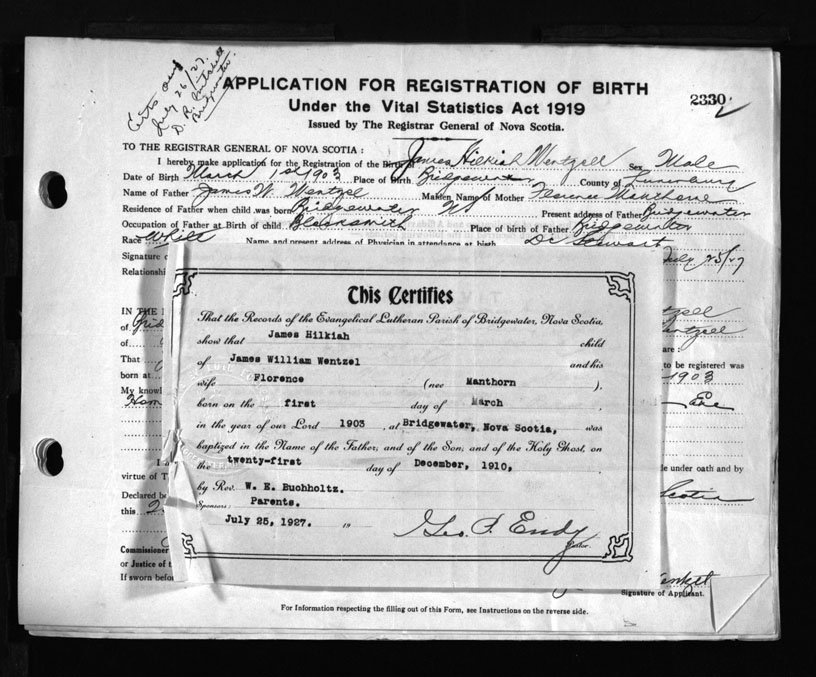 Certs
July 26/27.
D. R.
Bridgewater.
APPLICATION FOR REGISTRATION OF BIRTH
2330
Under the Vital Statistics Act 1919
Issued by The Registrar General of Nova Scotia.
TO THE REGISTRAR GENERAL OF NOVA SCOTIA :
I hereby make application for the Registration of the Birth of James Hilkiah Wentzell Sex Male
Date of Birth March 1st 1903 Place of Birth Bridgewater County of Lunenburg
Name of Father James W. Wentzel Maiden Name of Mother Florence
Residence of Father when child was born Bridgewater NS Present address of Father Bridgewater
Occupation of Father at Birth of child Blacksmith Place of birth of Father Bridgewater
Race White Name and present address of Physician in attendance at birth Dr Stewart
Signature o July 25/27
Relationshi
This Certifies
That the Records of the Evangelical Lutheran Parish of Bridgewater, Nova Scotia,
show that James Hilkiah child
of James William Wentzel and his
wife Florence (nee Manthorn ),
born on the first day of March
in the year of our Lord 1903 , at Bridgewater, Nova Scotia, was
baptized in the Name of the Father, and of the Son, and of the Holy Ghost, on
the twenty-first day of December, 1910,
by Rev. W. E. Buchholtz.
Sponsors: Parents.
July 25, 1927. 19
Geo. P. Endy
Pastor.
IN THE
of
of are :
That to be registered was
born at 1903
My knowl
I a
virtue of T de under oath and by
Declared be Scotia
this 2
Commissioner
or Justice of t
If sworn befo Signature of Applicant.
For Information respecting the filling out of this Form, see Instructions on the reverse side.